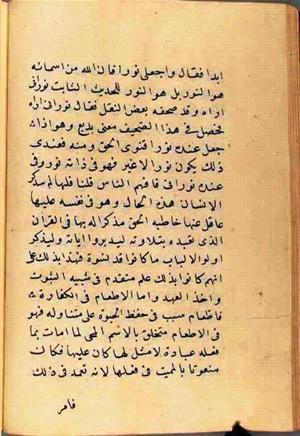 ابدا فقال واجعلنى نورا فان الله من اسمائه
هو النور بل هو النور للحديث الثابت نورانى
اراه وقد صحفه بعض النقل فقال نورانى اراه
فحصل فى هذا التصحيف معنى بديع وهو اذا
جعل عبده نورا فنوى الحق ومنه فعندى
ذلك يكون نورا لا غير فهو فى ذاته نور وفى
عبده نورانى فافهم الناس قلنا قلها لم يذكر
الانسان هذه الحال وهو فى نفسه عليها
غافل عنها خاطبه الحق مذكرا له بها فى القران
الذى تعبده بتلاوته ليدبروا اياته وليتذكر
اولوا الالباب ما كانوا قد نسوة فهذا يدلك على
انهم كانوا بذلك على علم متقدم فى شيئية الثبوت
واخذ العهد واما الاطعام فى الكفارة
فالطعام سبب فى حفظ الحيوة على متناوله فهو
فى الاطعام متخلق بالاسم المحى لما امات بما
فعله عبادة لا مثل لها كان عليها فكان
منعوتا بالميت فى فعلها لانه تعمد فى ذلك
فامر